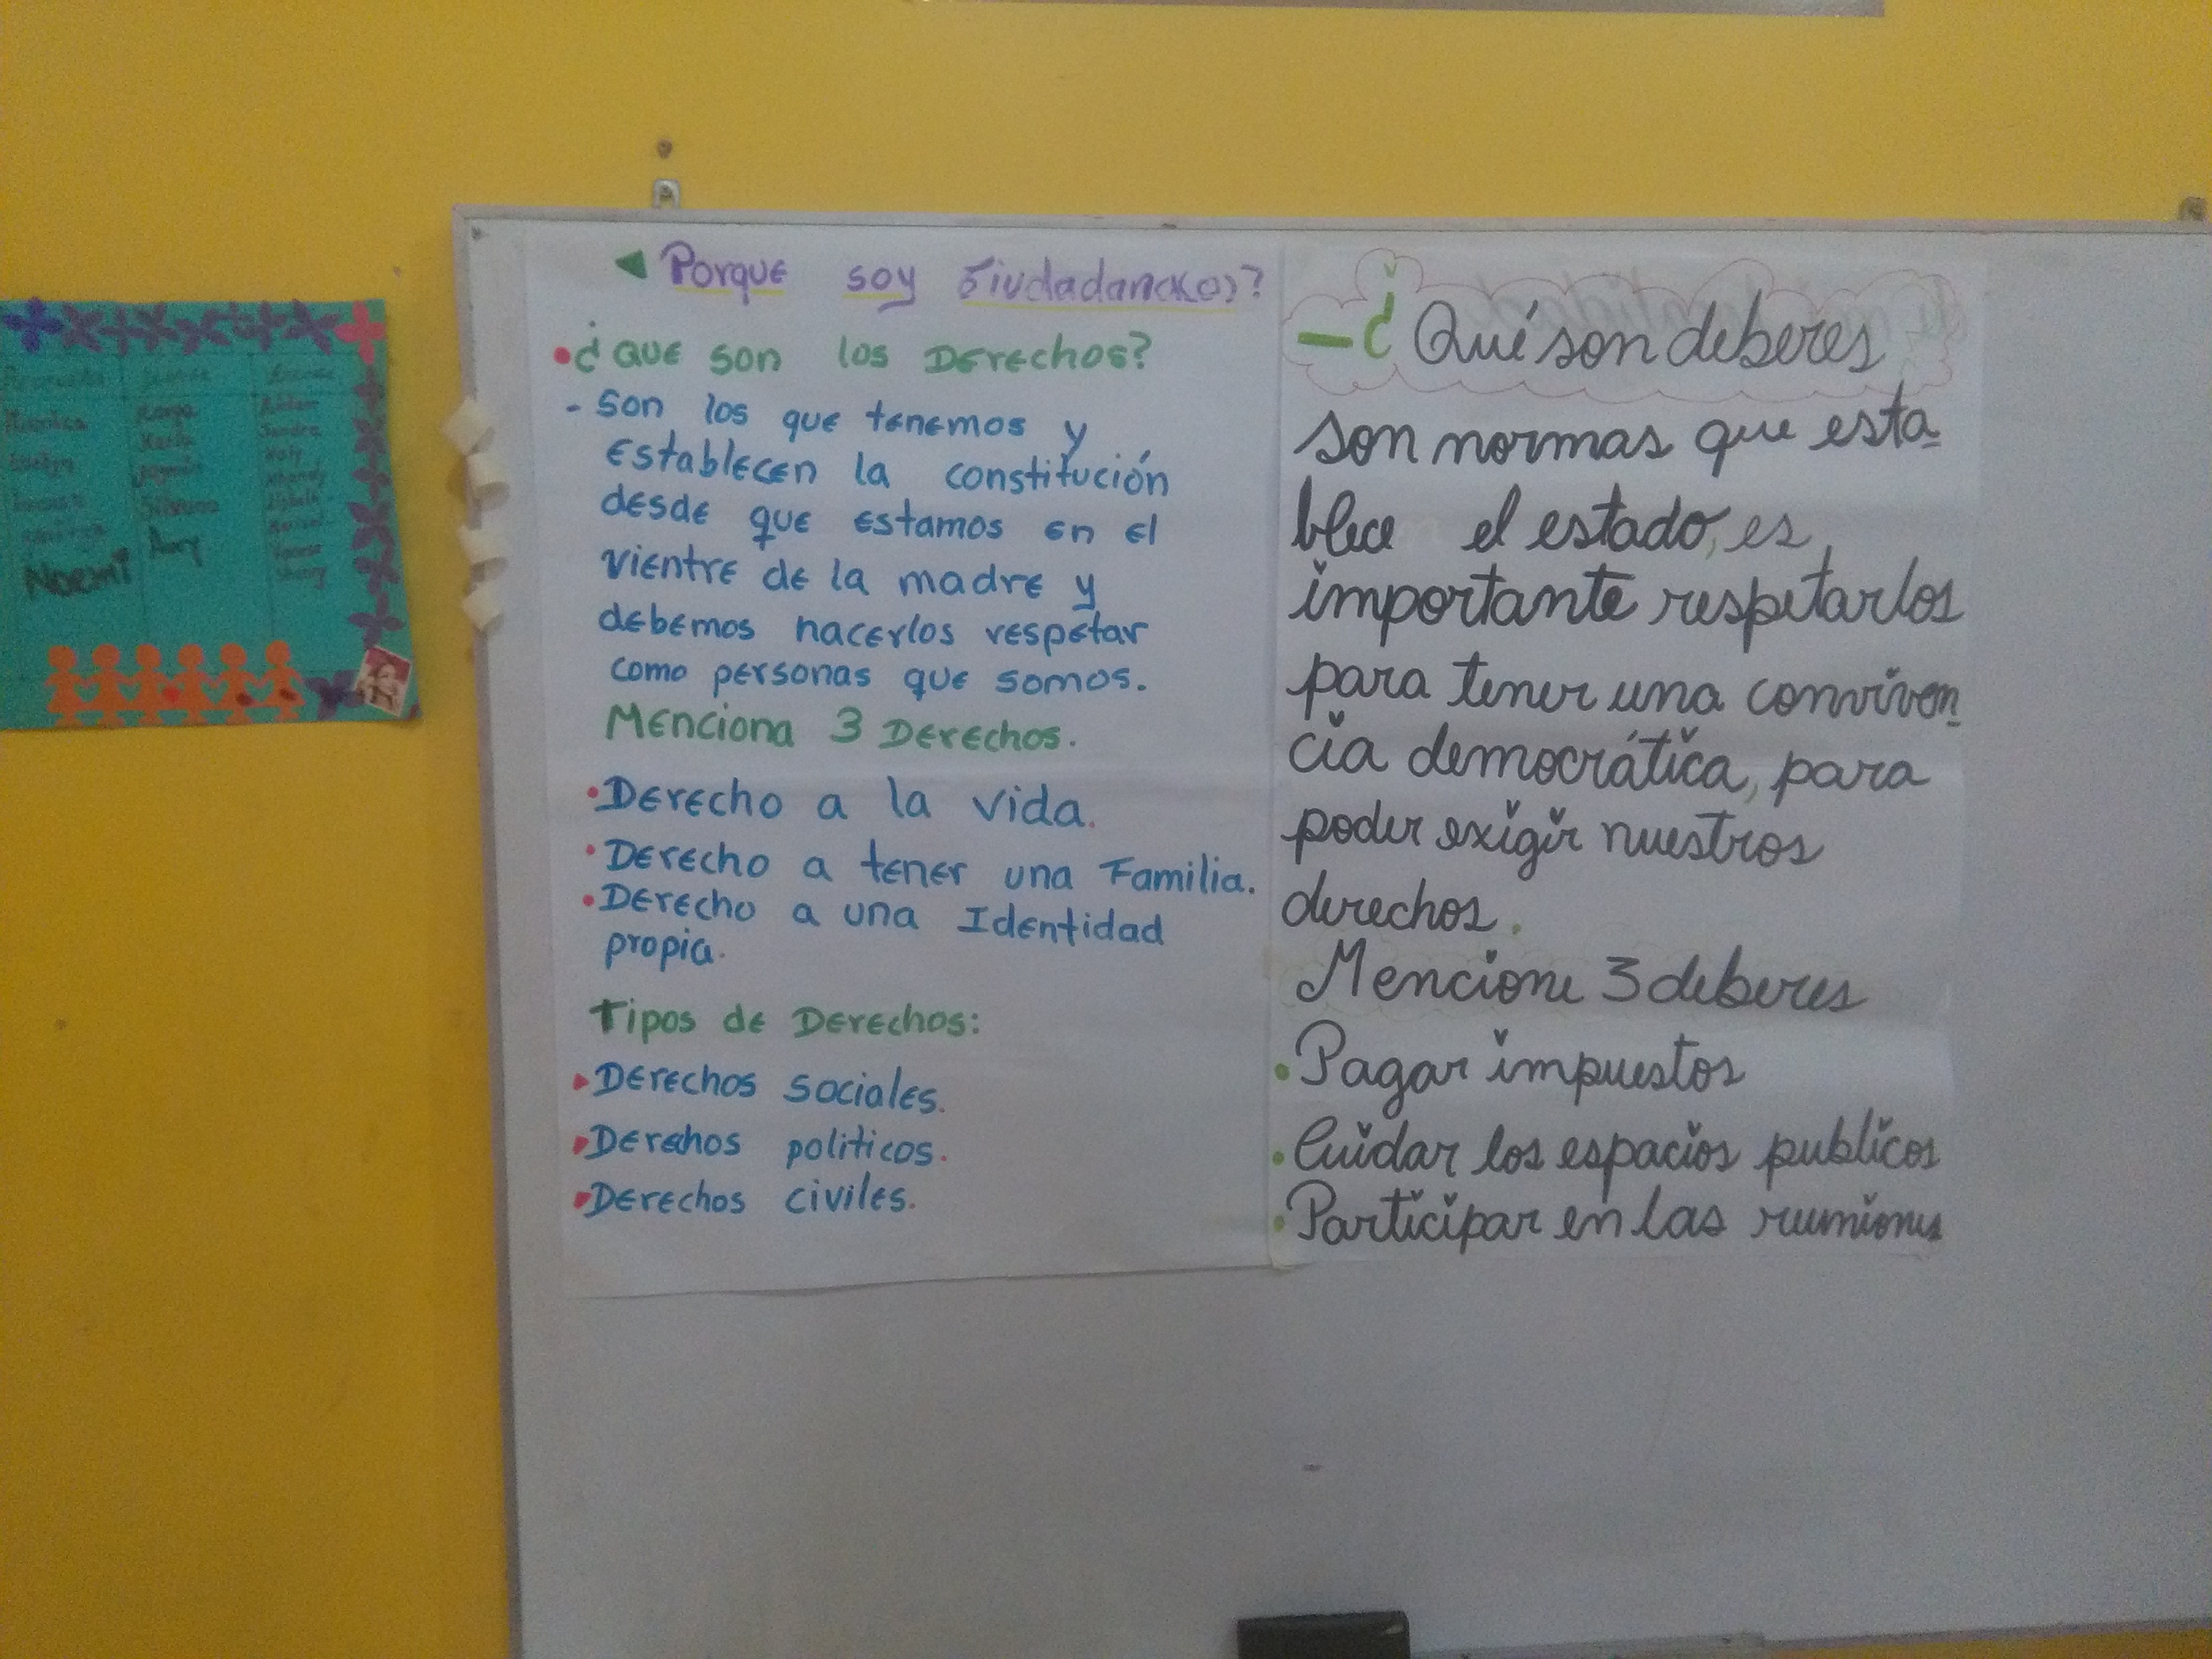 Porque soy Ciudadano(os)?
¿QUE SON los DErEchos?
- SON los que tenemos y
Establecen la constitución
desde que estamos en el
vientre de la madre y
debemos hacerlos respetar
como personas que somos.
Menciona 3 DErEchos.
•Derecho a la vida.
•Derecho a tener una Familia.
•Derecho a una Identidad
propia.
Tipos de Derechos:
Derechos sociales.
Derechos politicos.
Derechos civiles.
- ¿Qué son deberes
son normas que esta-
blece el estado, es
importante respetarlos
para tener una conviven-
cia democrática, para
poder exigir nuestros
derechos.
Mencione 3 deberes
•Pagar impuestos
•Cuidar los espacios publicos
•Participar en las reuniones
Noemi